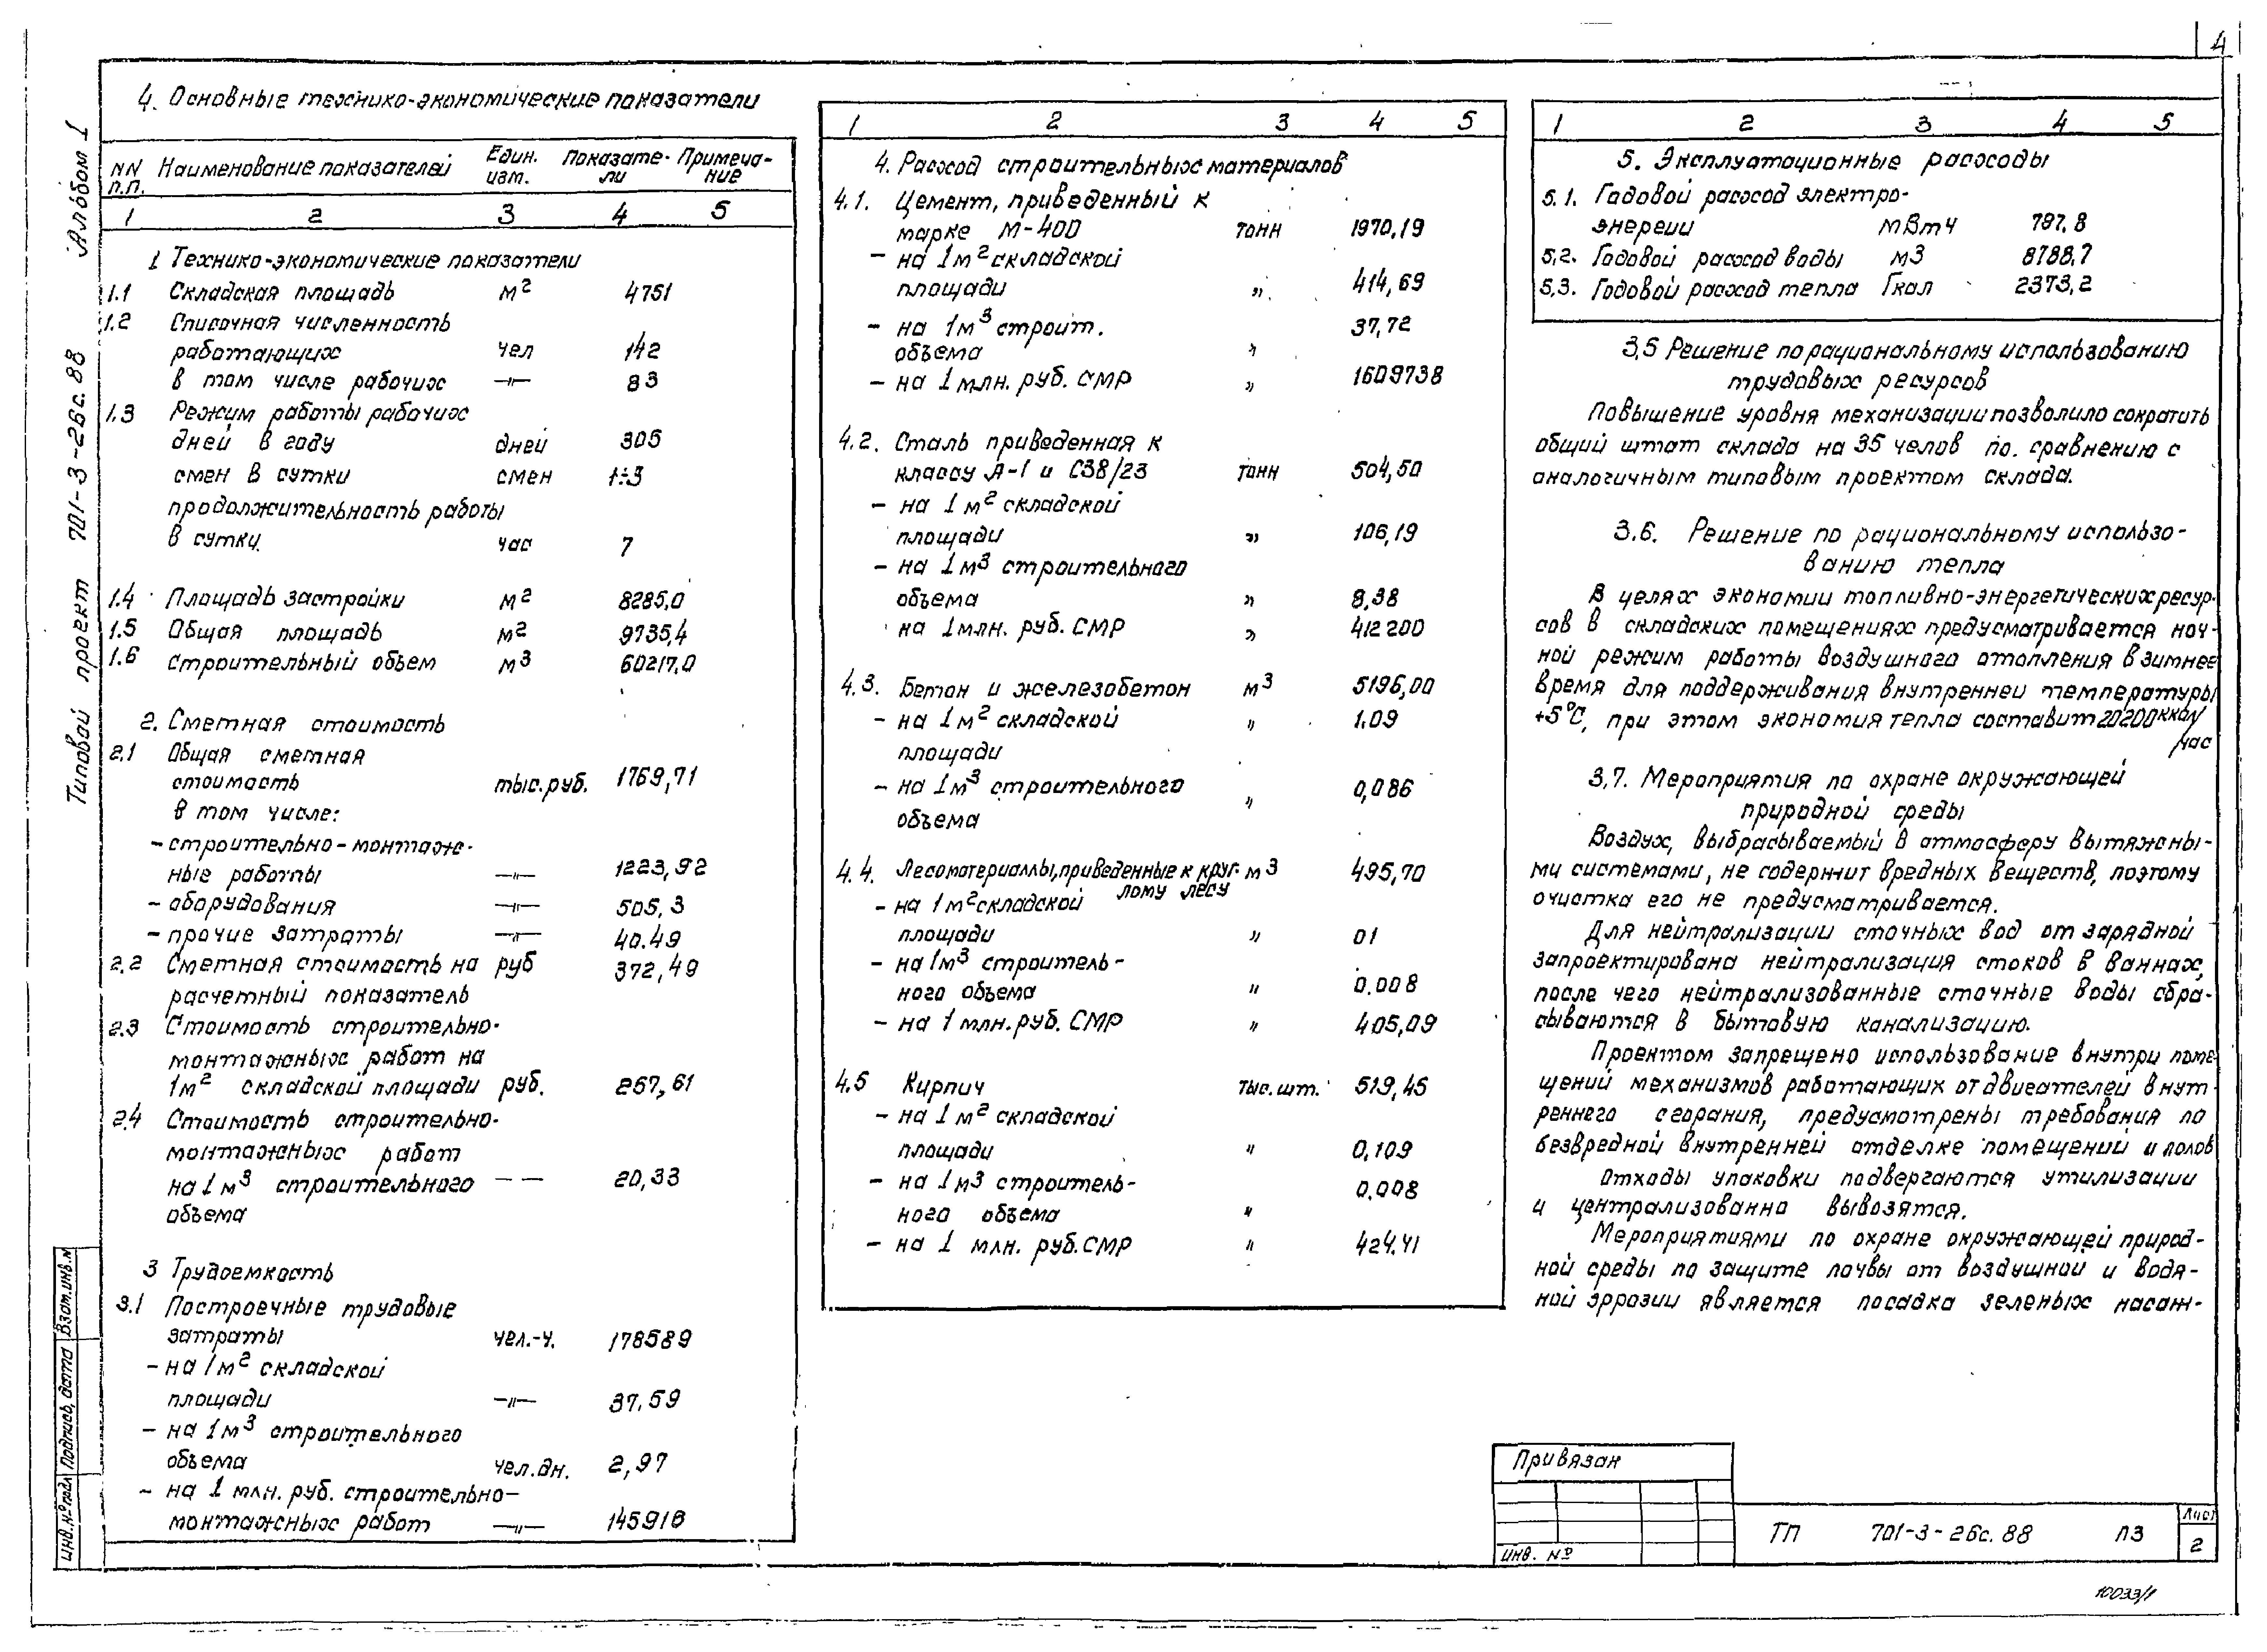 4
Альбом I
Типовой проект 701-3-26с.88
4. Основные технико-экономические показатели
NN п.п. Наименование показателей Един. изм. Показатели Примечание
1 2 3 4 5
1 Технико-экономические показатели
1.1 Складская площадь м² 4751
1.2 Списочная численность
работающих чел 142
в том числе рабочих —"— 83
1.3 Режим работы рабочих
дней в году дней 305
смен в сутки смен 1÷3
продолжительность работы
в сутки час 7
1.4 Площадь застройки м² 8285,0
1.5 Общая площадь м² 9735,4
1.6 Строительный объем м³ 60217,0
2. Сметная стоимость
2.1 Общая сметная
стоимость тыс.руб. 1769,71
в том числе:
- строительно-монтаж-
ные работы —"— 1223,92
- оборудования —"— 505,3
- прочие затраты —"— 40.49
2.2 Сметная стоимость на руб 372,49
расчетный показатель
2.3 Стоимость строительно-
монтажных работ на
1м² складской площади руб. 257,61
2.4 Стоимость строительно-
монтажных работ
на 1м³ строительного — — 20,33
объема
3 Трудоемкость
3.1 Построечные трудовые
затраты чел.-ч. 178589
- на 1м² складской
площади —"— 37.59
- на 1м³ строительного
объема чел.дн. 2,97
- на 1 млн. руб. строительно-
монтажных работ —"— 145916
1 2 3 4 5
4. Расход строительных материалов
4.1. Цемент, приведенный к
марке М-400 тонн 1970,19
- на 1м² складской
площади " 414,69
- на 1м³ строит. 37,72
объема "
- на 1 млн. руб. СМР " 1609738
4.2. Сталь приведенная к
классу А-1 и С38/23 тонн 504,50
- на 1 м² складской
площади " 106,19
- на 1м³ строительного
объема " 8,38
на 1млн. руб. СМР " 412200
4.3. Бетон и железобетон м³ 5196,00
- на 1м² складской " 1.09
площади
- на 1м³ строительного 0,086
объема "
4.4. Лесоматериаллы, приведенные к круг- м3 495,70
лому лесу
- на 1м² складской
площади " 01
- на 1м³ строитель-
ного объема " 0.008
- на 1 млн. руб. СМР " 405,09
4.5 Кирпич тыс.шт. 519,45
- на 1 м² складской
площади " 0,109
- на 1м3 строитель- 0.008
ного объема "
- на 1 млн. руб.СМР " 424.41
1 2 3 4 5
5. Эксплуатационные расходы
5.1. Годовой расход электро-
энергии мВтч 797,8
5,2. Годовой расход воды м3 8788,7
5,3. Годовой расход тепла Гкал 2373,2
3,5 Решение по рациональному использованию
трудовых ресурсов
Повышение уровня механизации позволило сократить
общий штат склада на 35 челов по. сравнению с
аналогичным типовым проектом склада.
3.6. Решение по рациональному использо-
ванию тепла
В целях экономии топливно-энергетических ресур-
сов в складских помещениях предусматривается ноч-
ной режим работы воздушного отопления в зимнее
время для поддерживания внутренней температуры
+5°С, при этом экономия тепла составит 20200 ккал/
час
3,7. Мероприятия по охране окружающей
природной среды
Воздух, выбрасываемый в атмосферу вытяжны-
ми системами, не содержит вредных веществ, поэтому
очистка его не предусматривается.
Для нейтрализации сточных вод от зарядной
запроектирована нейтрализация стоков в ваннах,
после чего нейтрализованные сточные воды сбра-
сываются в бытовую канализацию.
Проектом запрещено использование внутри поме-
щений механизмов работающих от двигателей внут-
реннего сгорания, предусмотрены требования по
безвредной внутренней отделке помещений и полов
Отходы упаковки подвергаются утилизации
и централизованно вывозятся.
Мероприятиями по охране окружающей природ-
ной среды по защите почвы от воздушной и водя-
ной эррозии является посадка зеленых насаж-
Привязан
Инв. №
ТП 701-3-26с.88 ПЗ
Лист
2
10033/1
Инв.№подл Подпись, дата Взам.инв.№